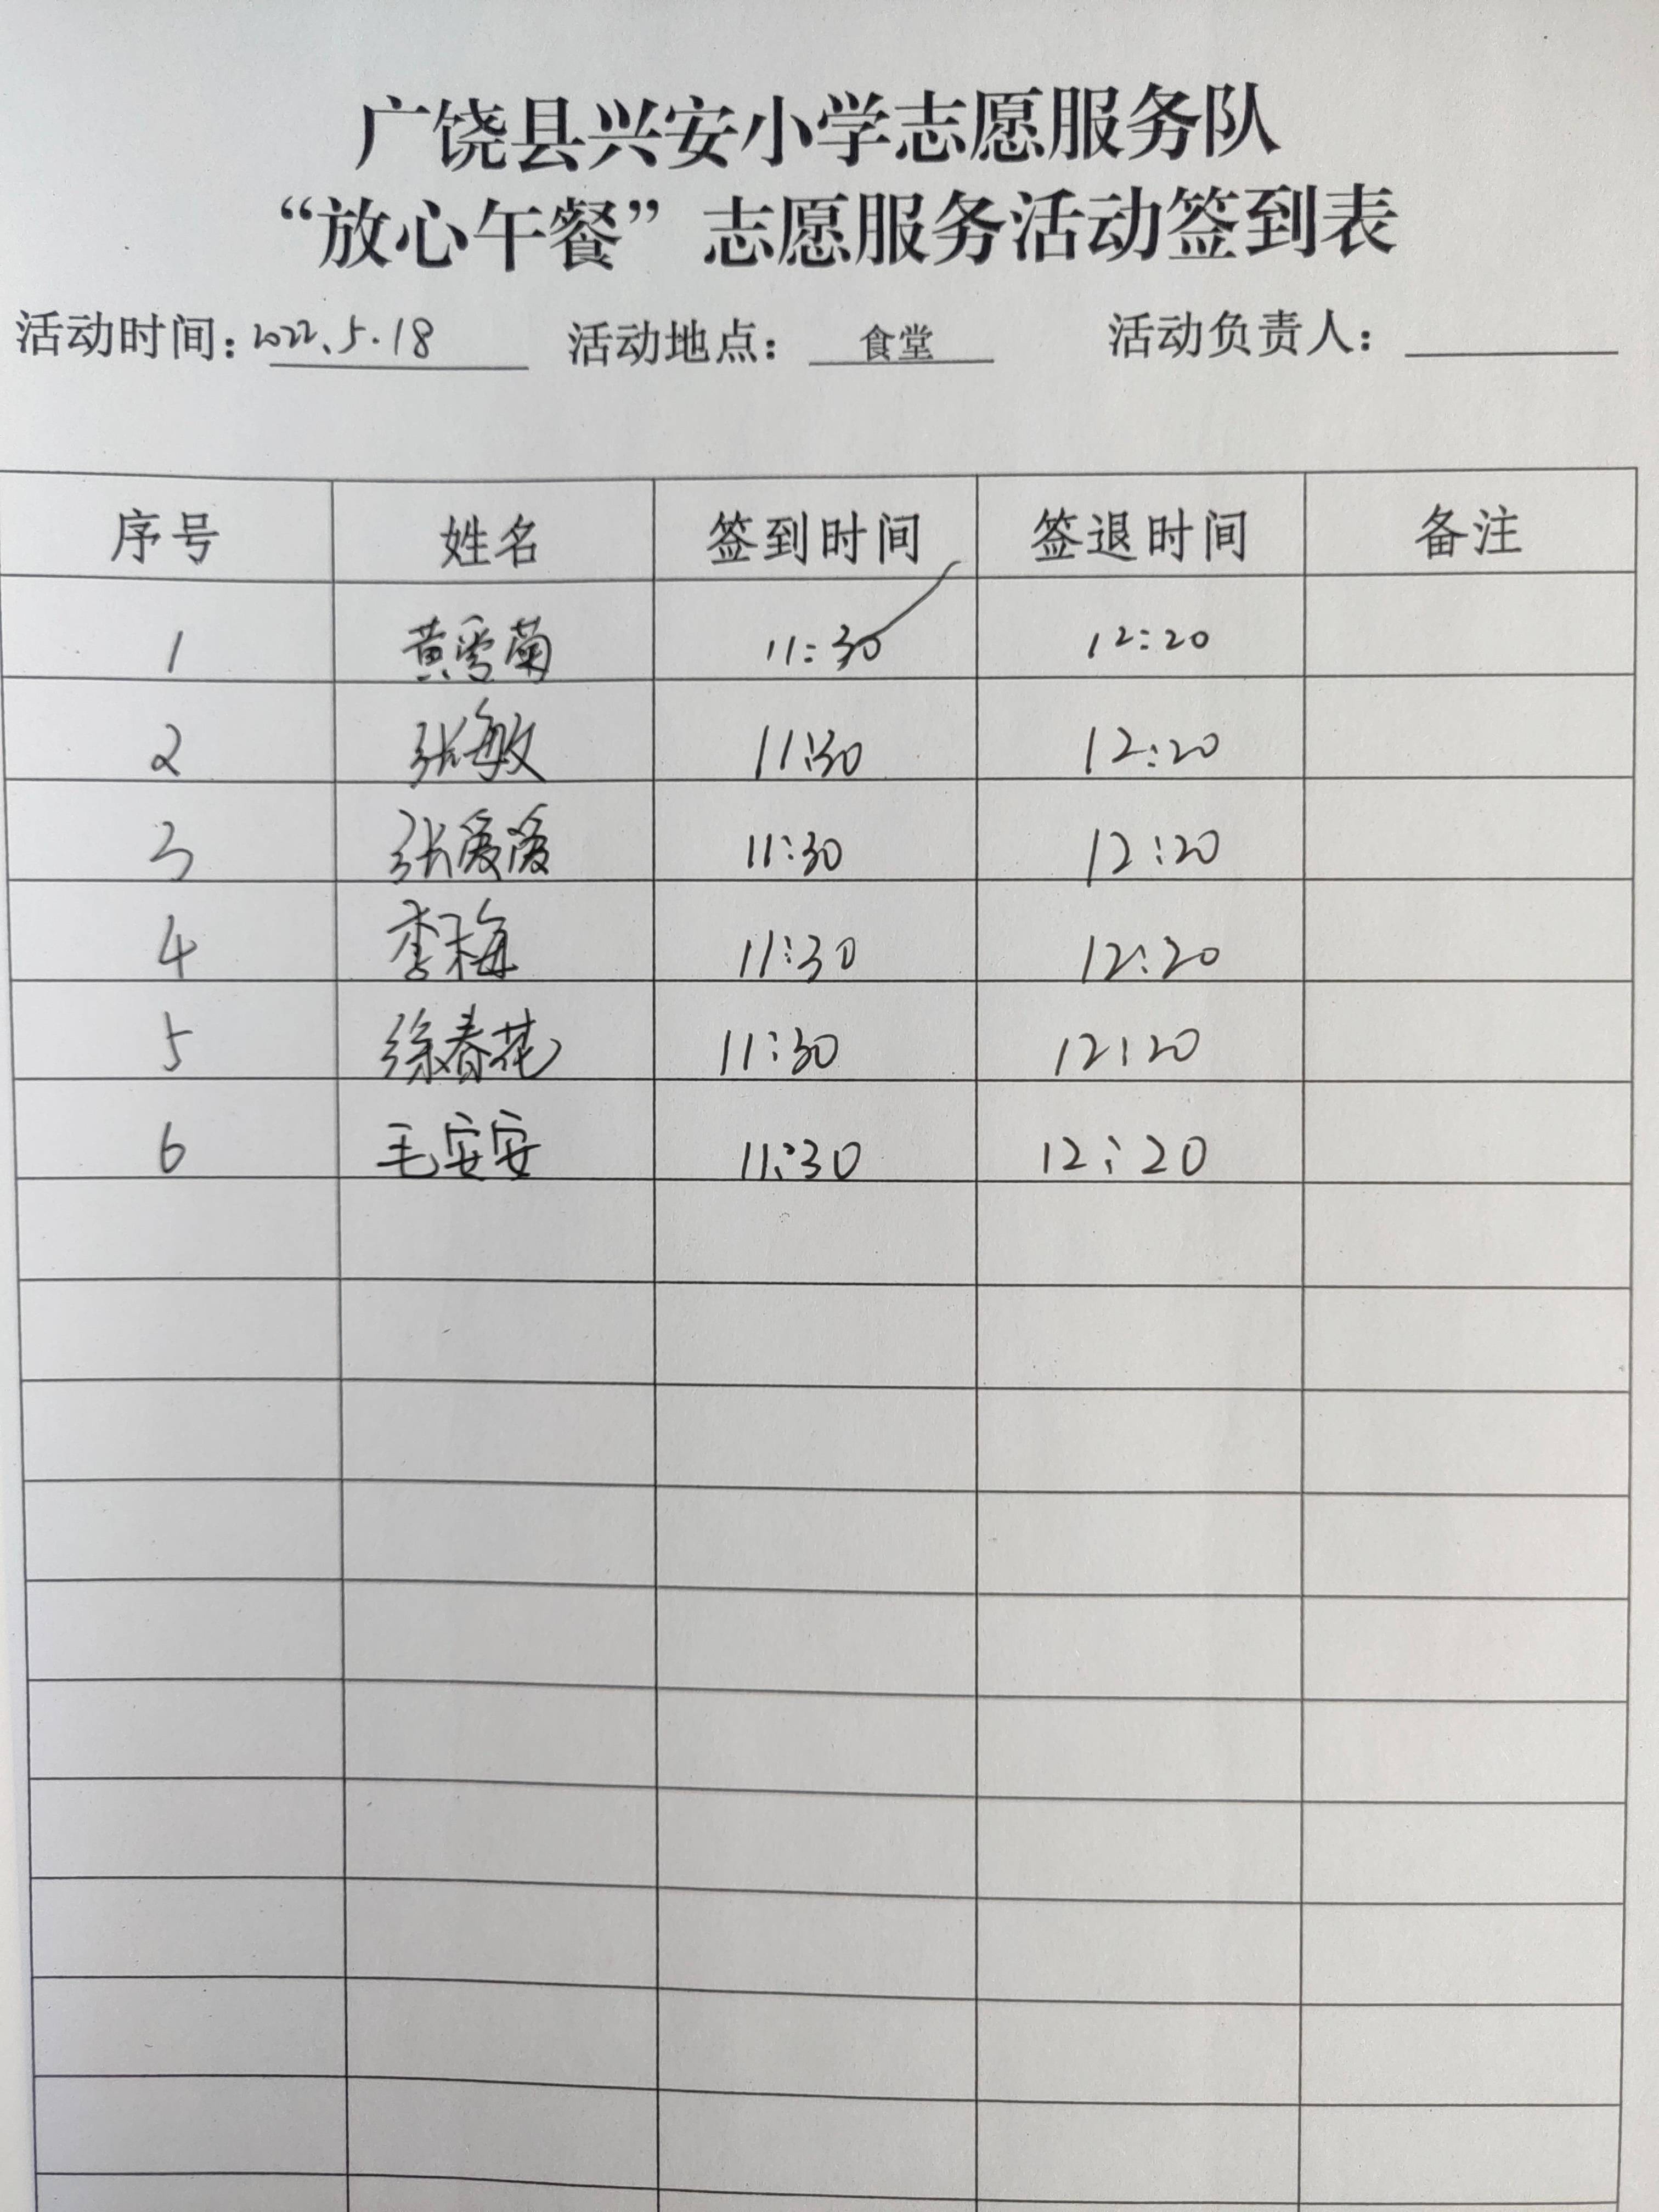 广饶县兴安小学志愿服务队
“放心午餐”志愿服务活动签到表
活动时间：2022.5.18 活动地点：食堂 活动负责人：
序号 姓名 签到时间 签退时间 备注
1 黄雪菊 11:30 12:20
2 张敏 11:30 12:20
3 张爱爱 11:30 12:20
4 李梅 11:30 12:20
5 徐春花 11:30 12:20
6 毛安安 11:30 12:20